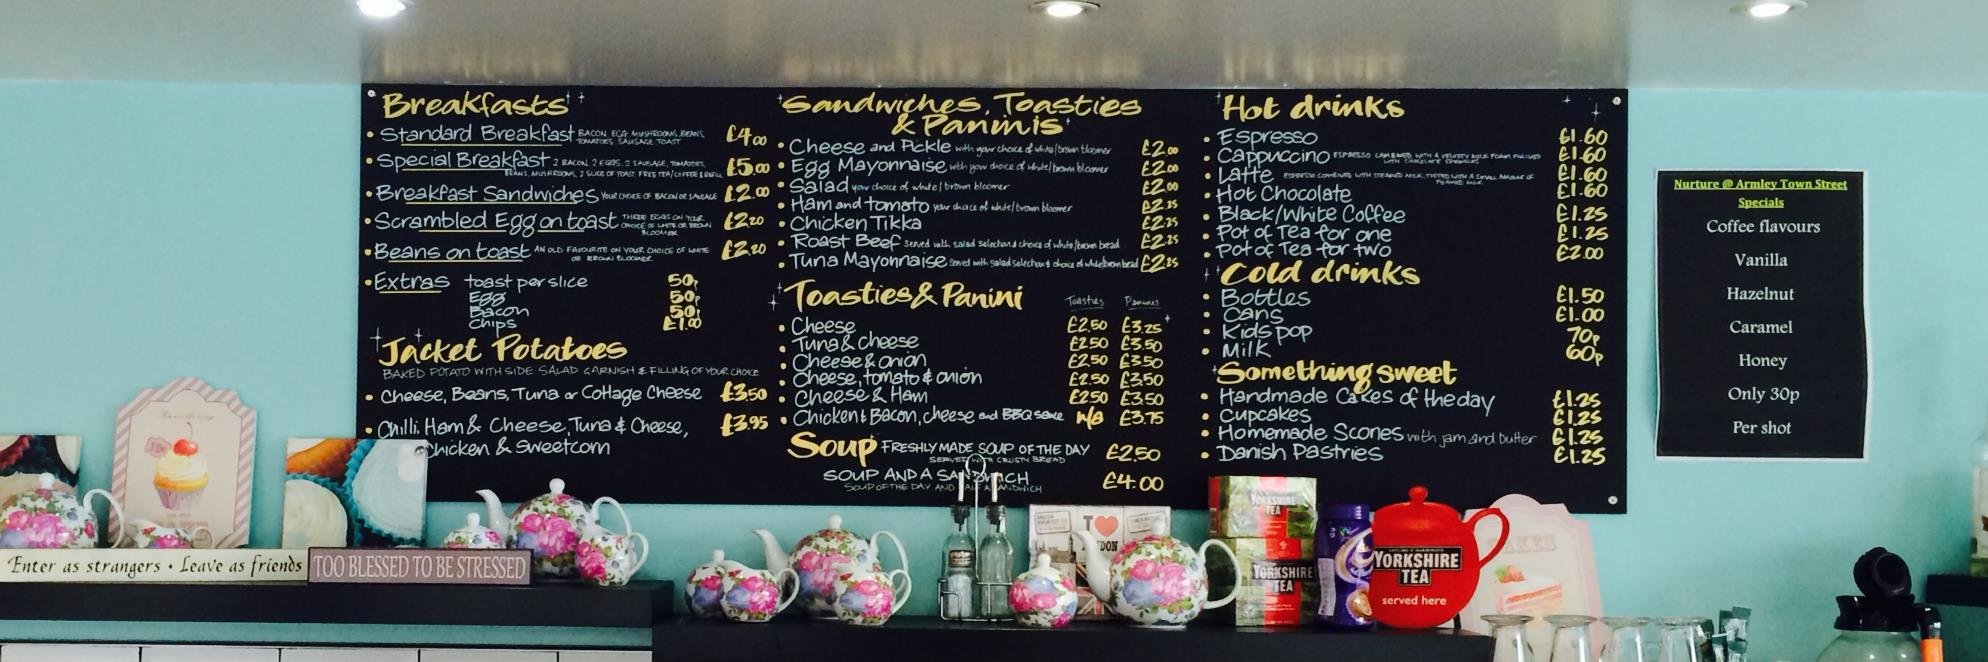 Breakfasts
Standard Breakfast BACON, EGG, MUSHROOMS, BEANS, £4.00
TOMATOES, SAUSAGE TOAST
Special Breakfast 2 BACON, 2 EGGS, 2 SAUSAGE, TOMATOES, £5.00
BEANS, MUSHROOMS, 2 SLICE OF TOAST, FREE TEA/COFFEE & REFILL
Breakfast Sandwiches YOUR CHOICE OF BACON OR SAUSAGE £2.00
Scrambled Egg on toast THREE EGGS ON YOUR £2.20
CHOICE OF WHITE OR BROWN
BLOOMER
Beans on toast AN OLD FAVOURITE ON YOUR CHOICE OF WHITE £2.20
OR BROWN BLOOMER
Extras toast per slice 50p
Egg 50p
Bacon 50p
Chips £1.00
Jacket Potatoes
BAKED POTATO WITH SIDE SALAD GARNISH & FILLING OF YOUR CHOICE
Cheese, Beans, Tuna or Cottage Cheese £3.50
Chilli, Ham & Cheese, Tuna & Cheese, £3.95
Chicken & Sweetcorn
Sandwiches, Toasties
& Paninis
Cheese and Pickle with your choice of white/brown bloomer £2.00
Egg Mayonnaise with your choice of white/brown bloomer £2.00
Salad your choice of white/brown bloomer £2.00
Ham and tomato your choice of white/brown bloomer £2.25
Chicken Tikka £2.25
Roast Beef served with salad selection & choice of white/brown bread £2.25
Tuna Mayonnaise served with salad selection & choice of white/brown bread £2.25
Toasties & Panini Toasties Paninis
Cheese £2.50 £3.25
Tuna & cheese £2.50 £3.50
Cheese & onion £2.50 £3.50
Cheese, tomato & onion £2.50 £3.50
Cheese & Ham £2.50 £3.50
Chicken & Bacon, cheese and BBQ sauce n/a £3.75
Soup FRESHLY MADE SOUP OF THE DAY £2.50
SERVED WITH CRUSTY BREAD
SOUP AND A SANDWICH £4.00
SOUP OF THE DAY AND HALF A SANDWICH
Hot drinks
Espresso £1.60
Cappuccino ESPRESSO COMBINED WITH A VELVETY MILK FOAM FINISHED £1.60
WITH CHOCOLATE SPRINKLES
Latte ESPRESSO COMBINED WITH STEAMED MILK, TOPPED WITH A SMALL AMOUNT OF £1.60
FOAMED MILK
Hot Chocolate £1.60
Black/White Coffee £1.25
Pot of Tea for one £1.25
Pot of Tea for two £2.00
Cold drinks
Bottles £1.50
Cans £1.00
Kids pop 70p
Milk 60p
Something sweet
Handmade Cakes of the day £1.25
Cupcakes £1.25
Homemade Scones with jam and butter £1.25
Danish Pastries £1.25
Nurture @ Armley Town Street
Specials
Coffee flavours
Vanilla
Hazelnut
Caramel
Honey
Only 30p
Per shot
Enter as strangers • Leave as friends
TOO BLESSED TO BE STRESSED
I
YORKSHIRE
TEA
YORKSHIRE
TEA
YORKSHIRE
TEA
served here
CAKES